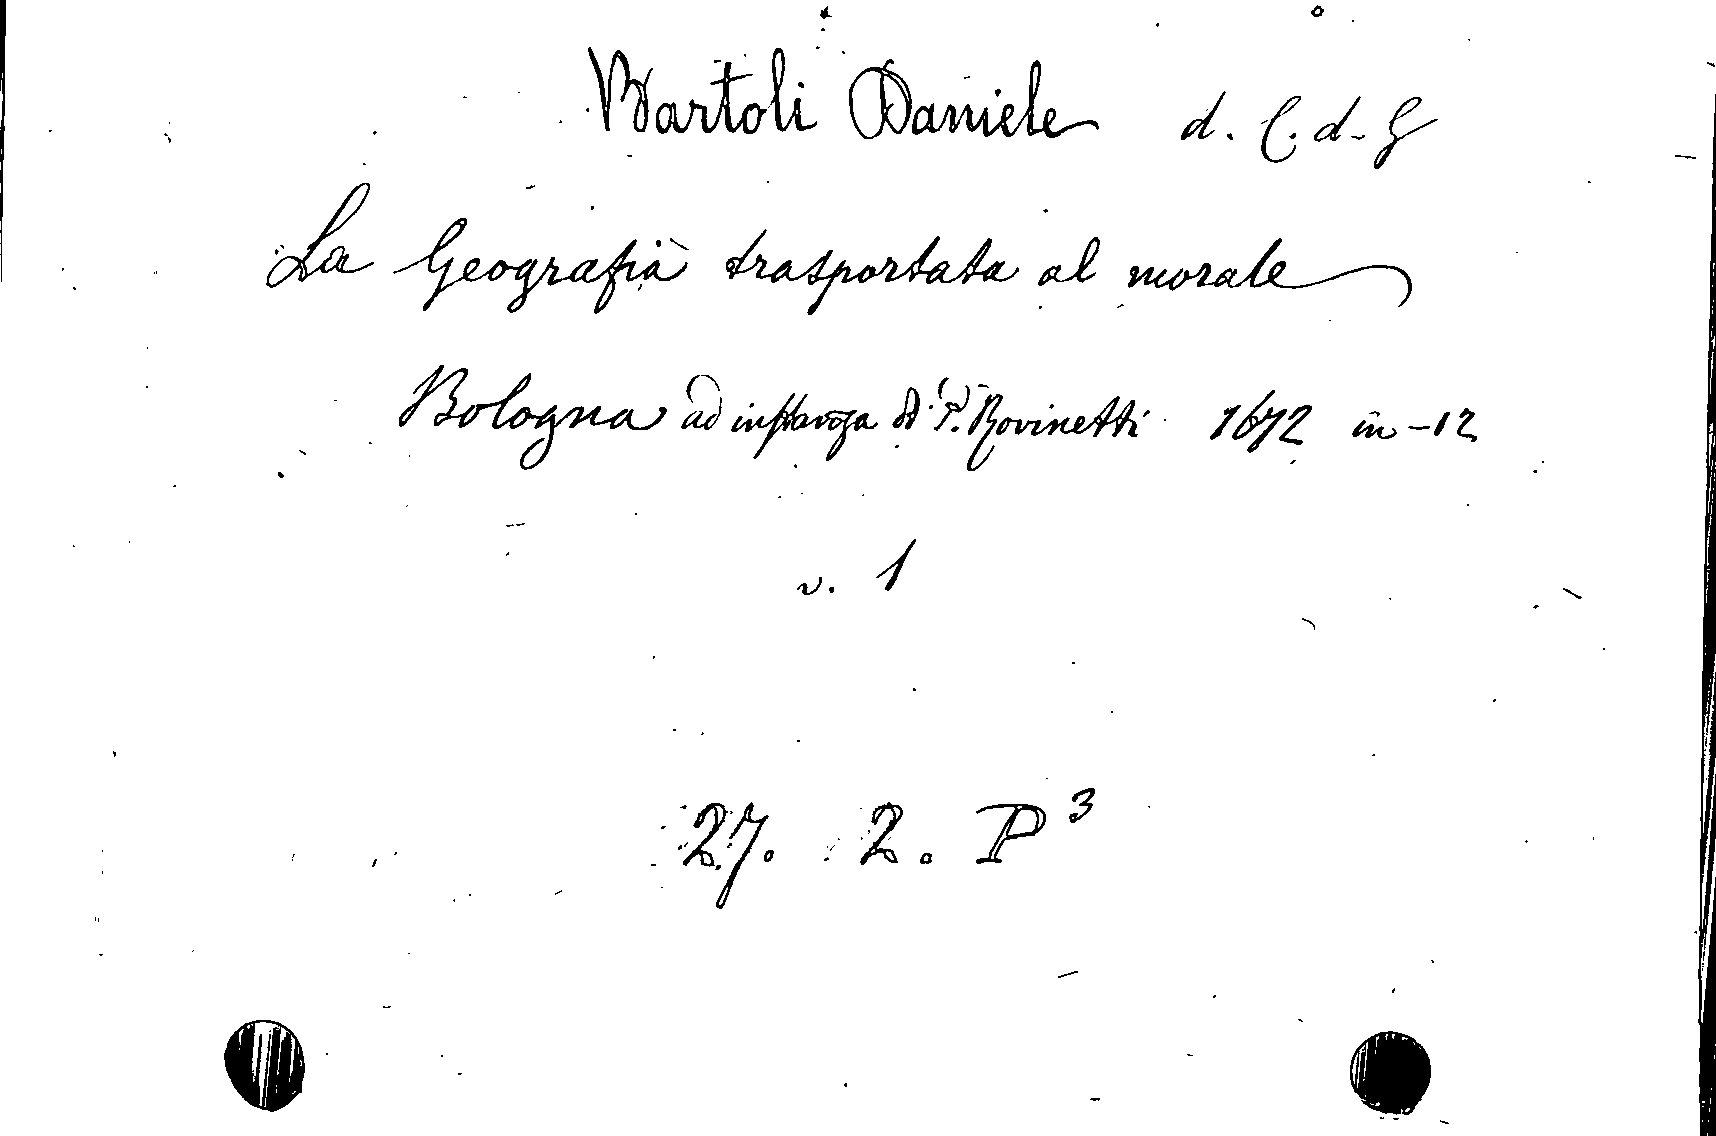 Bartoli Daniele d. C. d. G
La Geografia trasportata al morale
Bologna ad instanza di P. Bovinetti 1672 in-12
v. 1
27. 2. P 3